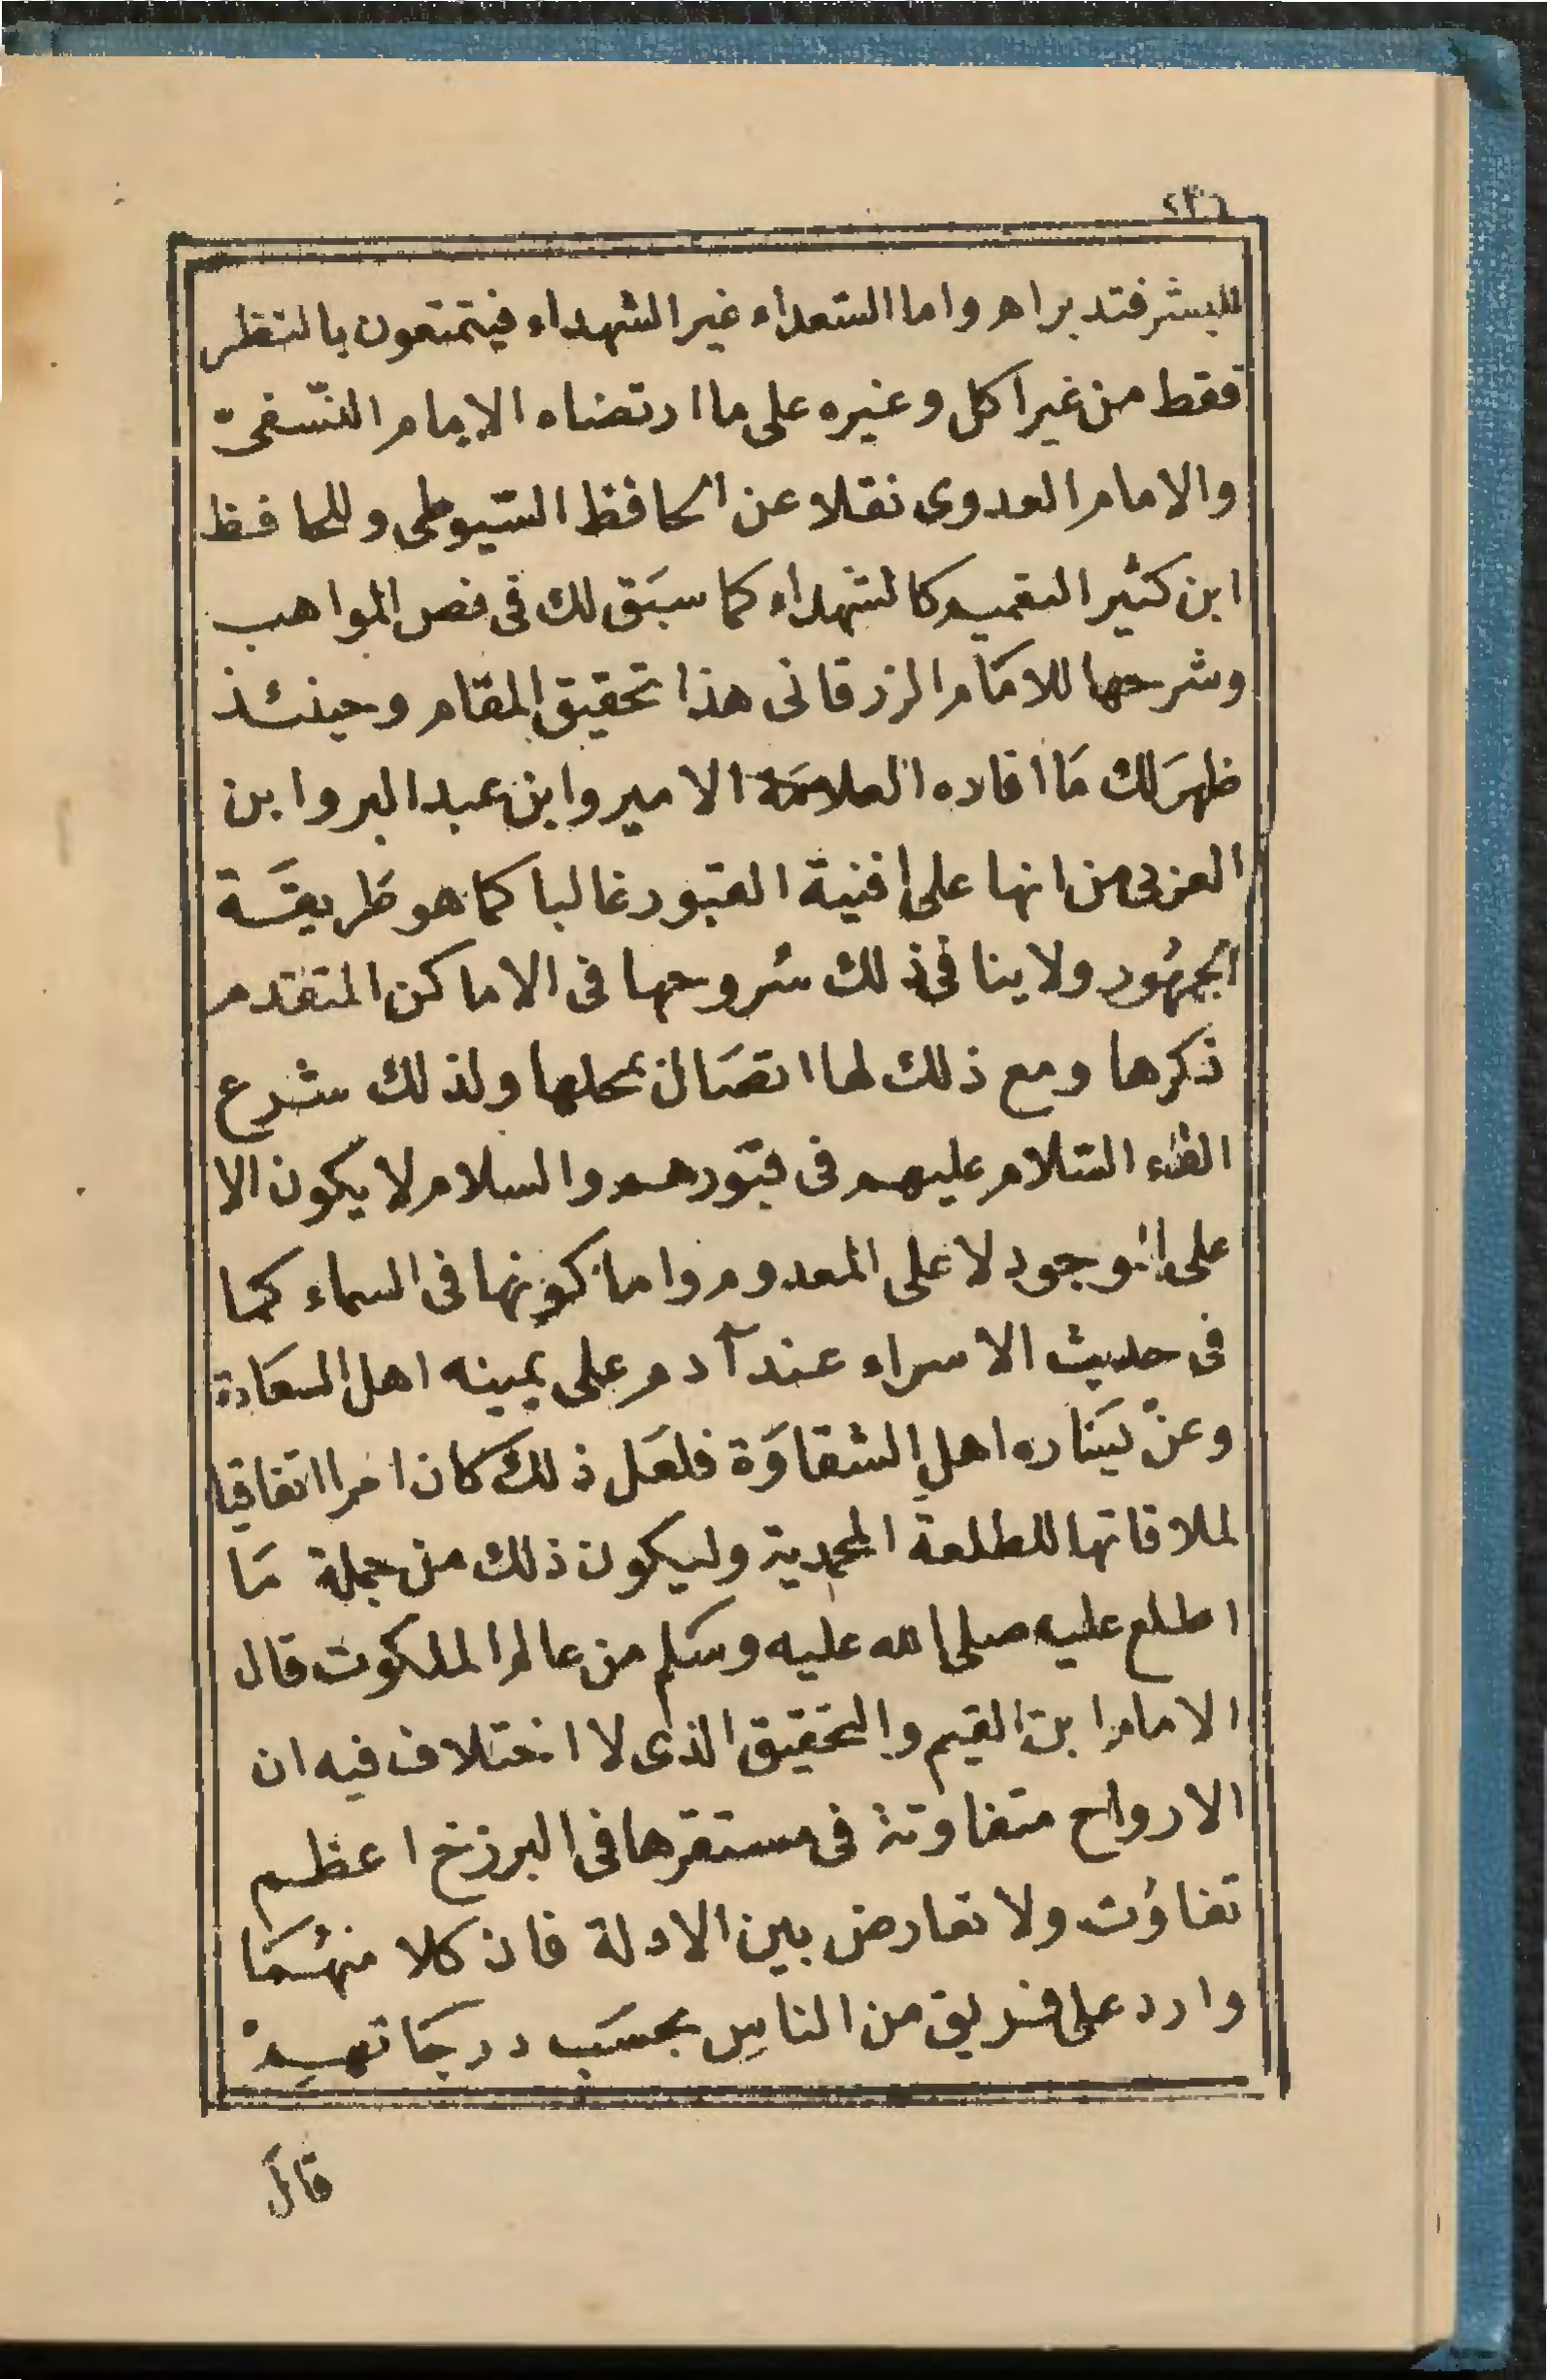 ٢٣٦
للبشر فتدبر اهـ واما السّعداء غير الشهداء فيتمتعون بالنظر
فقط من غير اكل وغيره على ما ارتضاه الامام النّسفىّ
والامام العدوى نقلا عن الحافظ السّيوطى وللحافظ
ابن كثير التعميم كالشهداء كما سبَق لك فى نص المواهب
وشرحها للامَام الزرقانى هذا تحقيق المقام وحينئذ
ظهرَ لك مَا افاده العلامَة الامير وابن عبد البر وابن
العربى من انها على افنية القبور غالبا كما هو طريقَة
الجمهُور ولا ينافى ذلك سُروحها فى الاماكن المتقدم
ذكرها ومع ذلك لها اتصَال بمحلها ولذلك شرع
القاء السّلام عليهم فى قبورهم والسلام لا يكون الا
على الموجود لا على المعدوم واما كونها فى السماء كما
فى حديث الاسراء عند آدم على يمينه اهل السعَادة
وعن يَسَاره اهل الشقاوَة فلعَل ذلك كان امرا اتفاقيا
لملاقاتها للطلعة المحمدية وليكون ذلك من جملة مَا
اطلع عليه صلى الله عليه وسَلم من عالم الملكوت قال
الامام ابن القيم والتحقيق الذى لا اختلاف فيه ان
الارواح متفاوتة فى مستقرها فى البرزخ اعظم
تفاوُت ولا تعارض بين الادلة فان كلا منهُمَا
وارد على فريق من الناسِ بحسَب درجَاتهمْ
قال